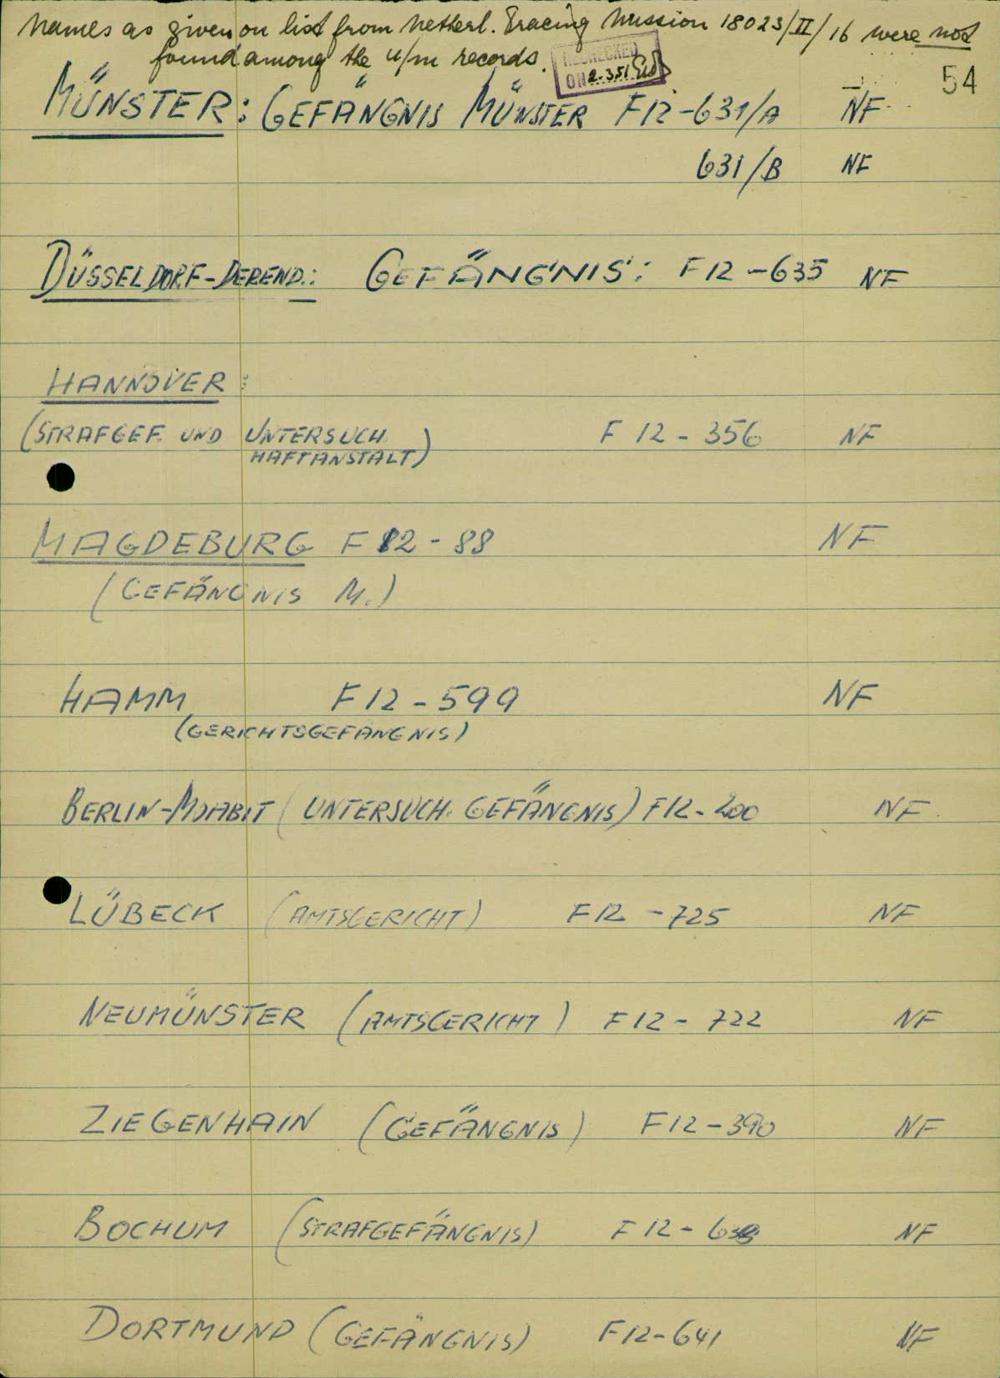 Names as given on list from Netherl. Tracing Mission 18023/II/16 were not
found among the u/m records.
RECHECKED
ON 2.3.51
54
MÜNSTER: GEFÄNGNIS MÜNSTER F12-631/A NF
631/B NF
DÜSSELDORF-DEREND.: GEFÄNGNIS: F12-635 NF
HANNOVER:
(STRAFGEF. UND UNTERSUCH. F 12-356 NF
HAFTANSTALT)
MAGDEBURG F 12-88 NF
(GEFÄNGNIS M.)
HAMM F12-599 NF
(GERICHTSGEFÄNGNIS)
BERLIN-MOABIT (UNTERSUCH. GEFÄNGNIS) F12-200 NF
LÜBECK (AMTSGERICHT) F12-725 NF
NEUMÜNSTER (AMTSGERICHT) F12-722 NF
ZIEGENHAIN (GEFÄNGNIS) F12-390 NF
BOCHUM (STRAFGEFÄNGNIS) F 12- NF
DORTMUND (GEFÄNGNIS) F12-641 NF